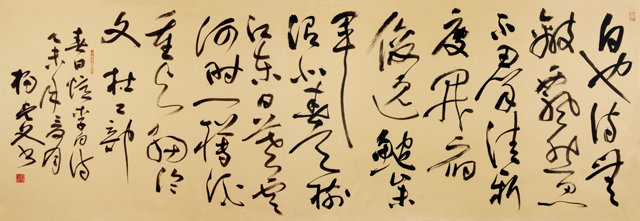 白也詩無
敵飄然思
不群清新
庾開府
俊逸鮑參
軍
渭北春天樹
江東日暮雲
何時一樽酒
重與細論
文杜工部
春日憶李白詩
乙未年月
楊書